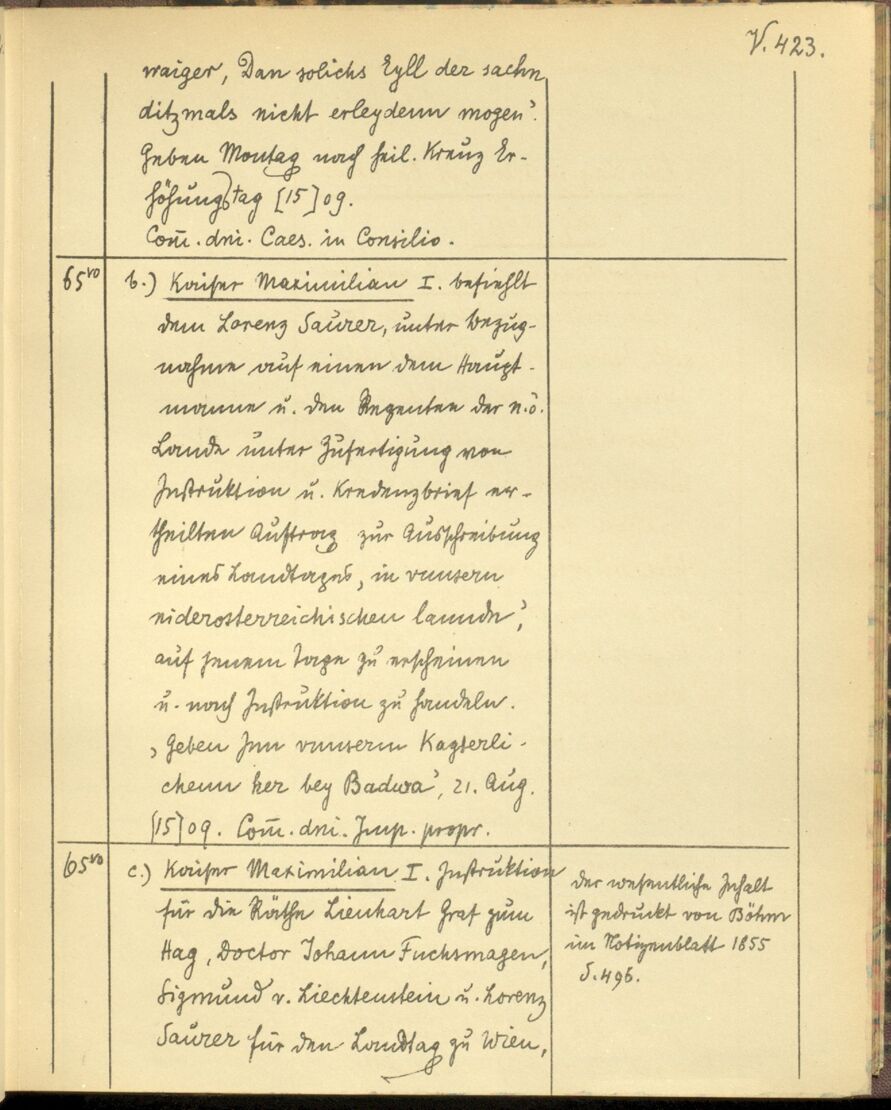 V. 423.
waiger, Dan solichs Eyll der sachn
ditzmals nicht erleydenn mogen'.
Geben Montag nach heil. Kreuz Er-
höhungstag [15]09.
Com̄. dni. Caes. in Consilio.
65vo b.) Kaiser Maximilian I. befiehlt
dem Lorenz Saurer, unter Bezug-
nahme auf einen dem Haupt-
manne u. den Regenten der n.ö.
Lande unter Zufertigung von
Instruktion u. Kredenzbrief er-
theilten Auftrag zur Ausschreibung
eines Landtages, in vnnsern
niderosterreichischen lannde',
auf jenem Tage zu erscheinen
u. nach Instruktion zu handeln.
'Geben Inn vnnserm Kayserli-
chenn her bey Badwa', 21. Aug.
[15]09. Com̄. dni. Imp. propr.
65vo c.) Kaiser Maximilian I. Instruktion
für die Räthe Lienhart Graf zum
Hag, Doctor Johann Fuchsmagen,
Sigmund v. Liechtenstein u. Lorenz
Saurer für den Landtag zu Wien,
der wesentliche Inhalt
ist gedruckt von Böhm
im Notizenblatt 1855
S. 496.